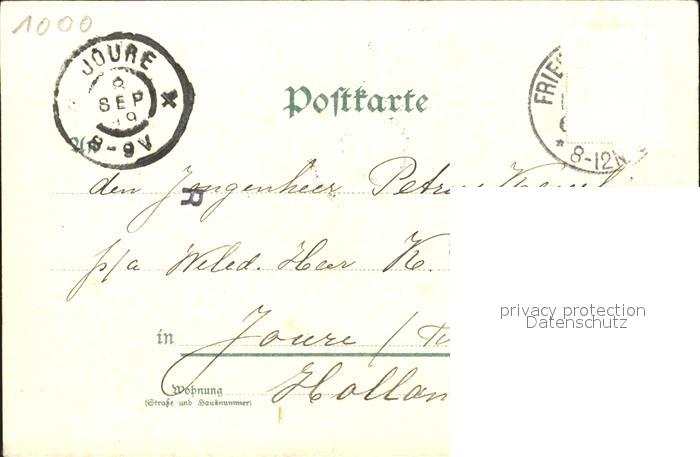 1000
JOURE
8
SEP
99
8-9V
Postkarte
FRIE
*8-12N
An
den Jongenheer Petrus
R
p/a Weled. Heer K.
privacy protection
Datenschutz
in Joure /
Wohnung
(Straße und Hausnummer)
Hollan